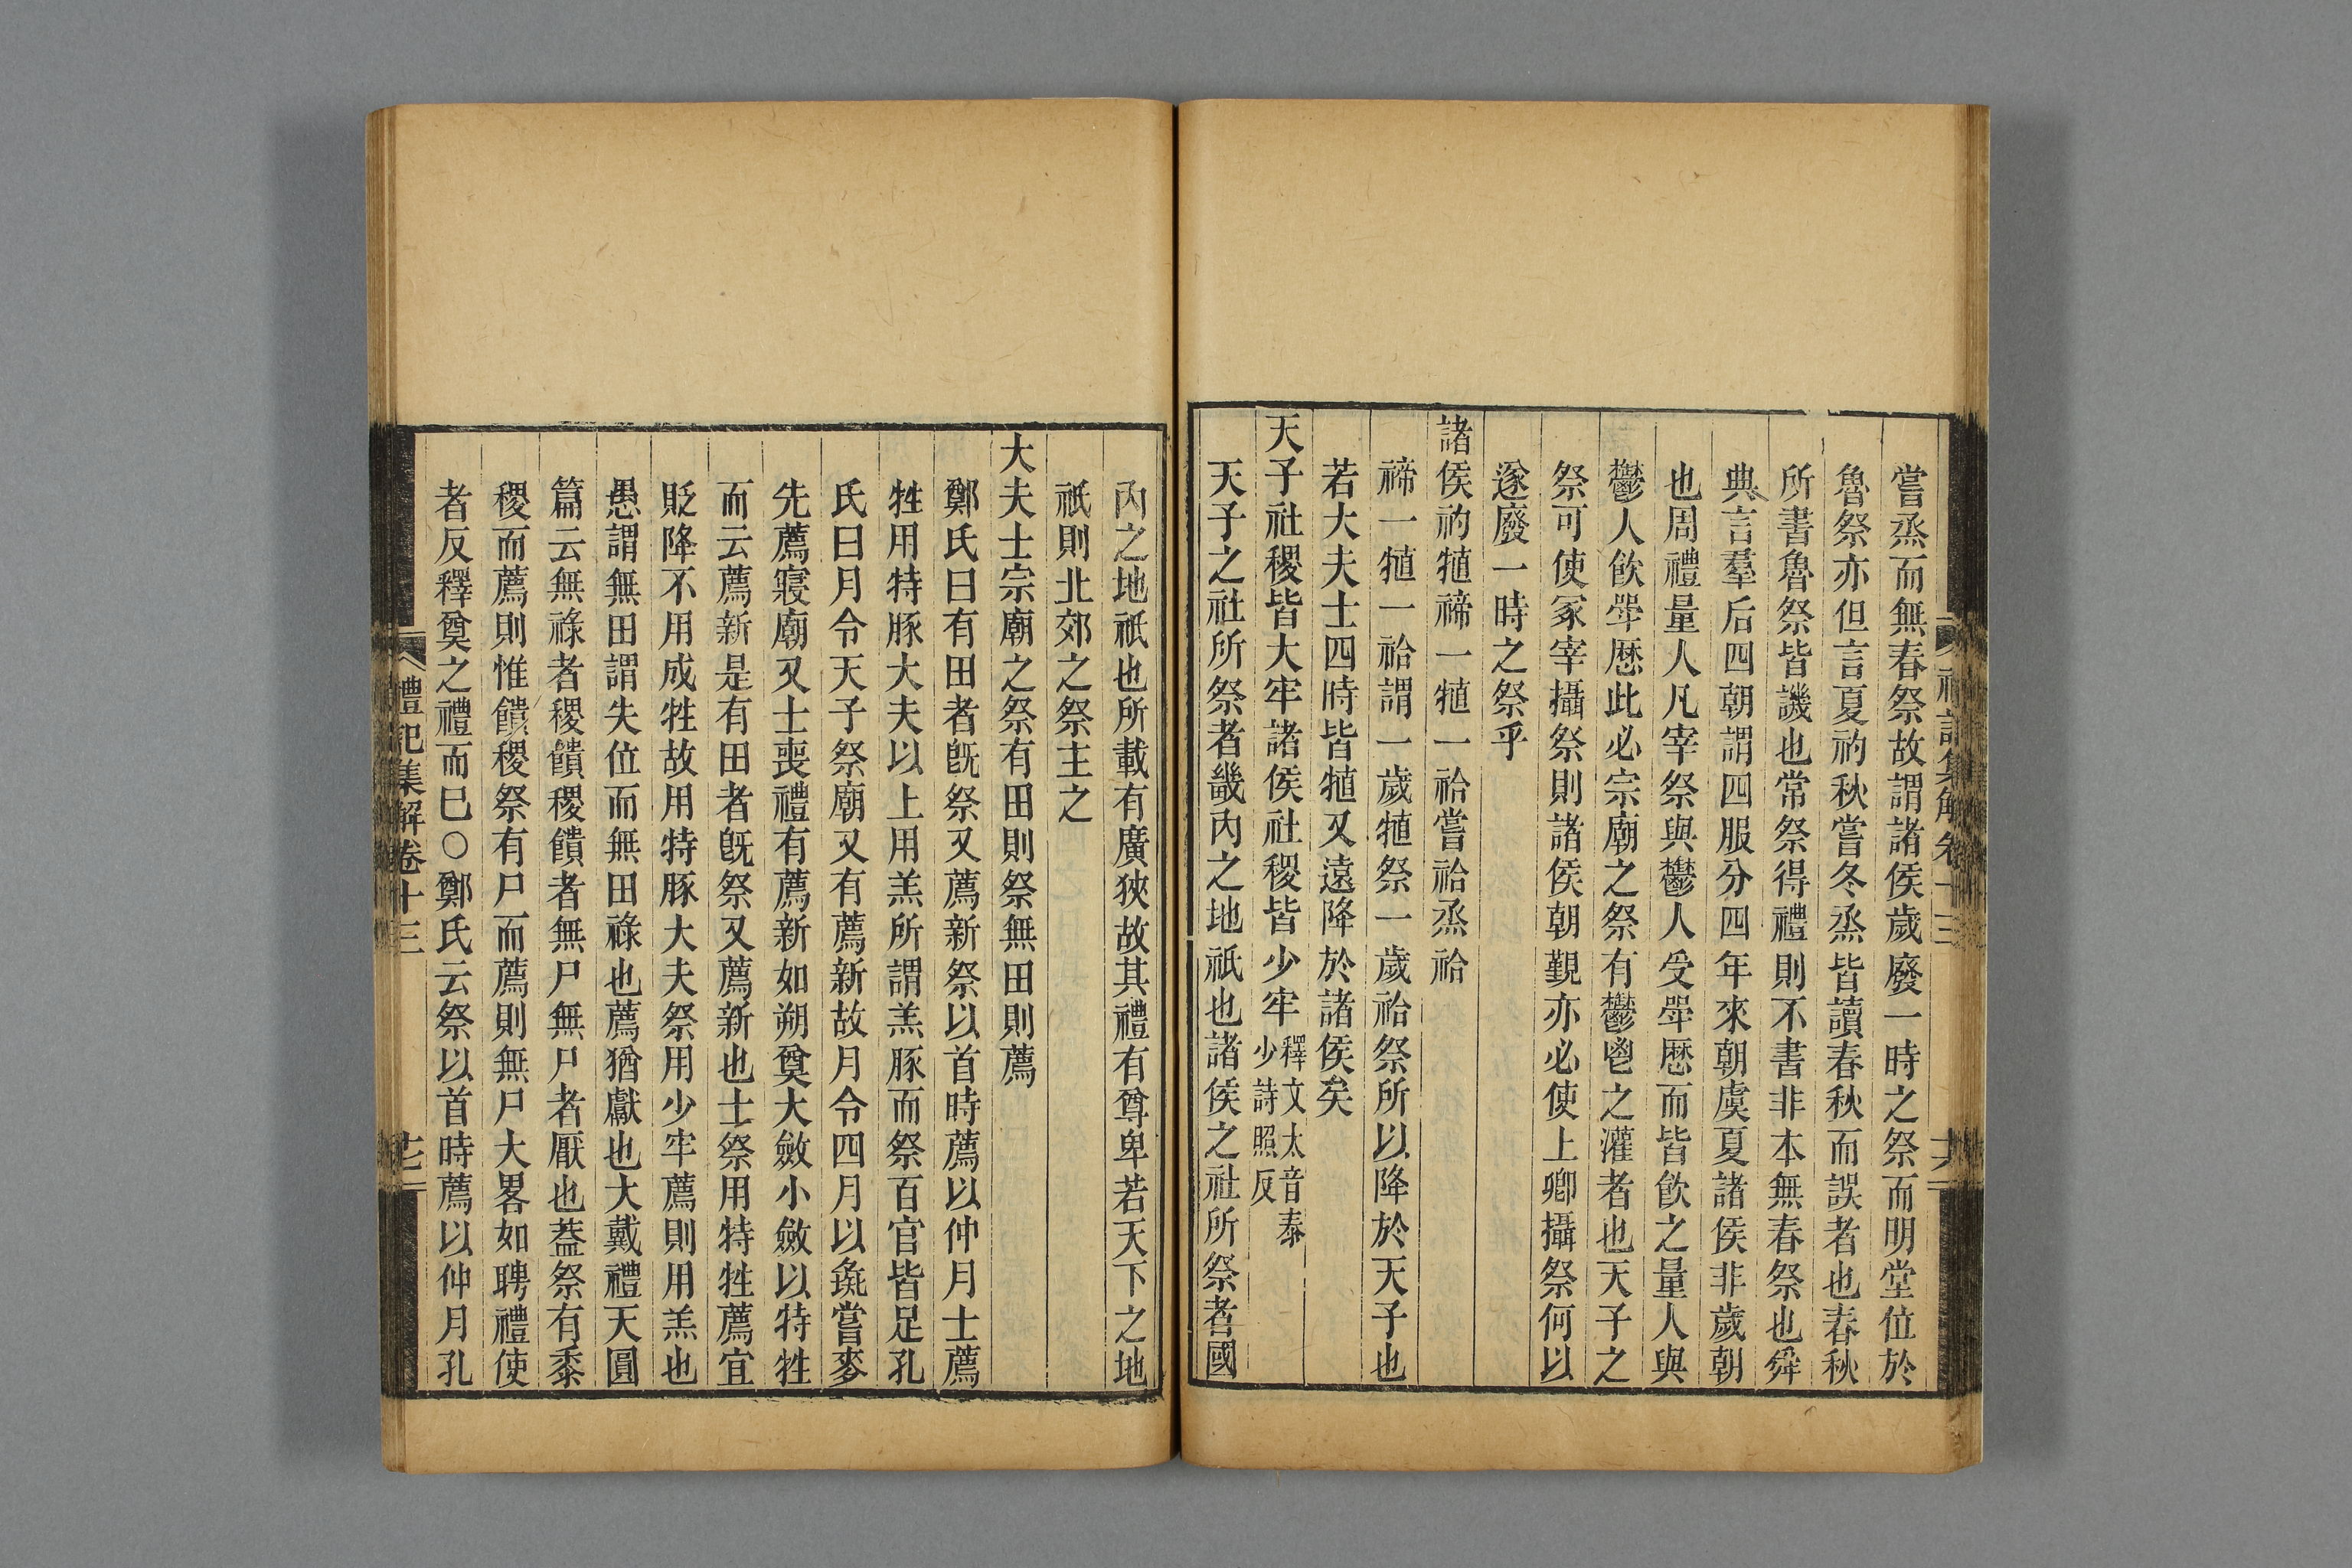 嘗烝而無春祭故謂諸侯歲廢一時之祭而明堂位於
魯祭亦但言夏礿秋嘗冬烝皆讀春秋而誤者也春秋
所書魯祭皆譏也常祭得禮則不書非本無春祭也舜
典言羣后四朝謂四服分四年來朝虞夏諸侯非歲朝
也周禮量人凡宰祭與鬱人受斝歷而皆飲之量人與
鬱人飲斝歷此必宗廟之祭有鬱鬯之灌者也天子之
祭可使冢宰攝祭則諸侯朝覲亦必使上卿攝祭何以
遂廢一時之祭乎
諸侯礿犆禘一犆一祫嘗祫烝祫
禘一犆一祫謂一歲犆祭一歲祫祭所以降於天子也
若大夫士四時皆犆又遠降於諸侯矣
天子社稷皆大牢諸侯社稷皆少牢釋文太音泰少詩照反
天子之社所祭者畿內之地祇也諸侯之社所祭者國
禮記集解卷十三 十六
內之地祇也所載有廣狹故其禮有尊卑若天下之地
祇則北郊之祭主之
大夫士宗廟之祭有田則祭無田則薦
鄭氏曰有田者旣祭又薦新祭以首時薦以仲月士薦
牲用特豚大夫以上用羔所謂羔豚而祭百官皆足孔
氏曰月令天子祭廟又有薦新故月令四月以彘嘗麥
先薦寢廟又士喪禮有薦新如朔奠大斂小斂以特牲
而云薦新是有田者旣祭又薦新也士祭用特牲薦宜
貶降不用成牲故用特豚大夫祭用少牢薦則用羔也
愚謂無田謂失位而無田祿也薦猶獻也大戴禮天圓
篇云無祿者稷饋稷饋者無尸無尸者厭也蓋祭有黍
稷而薦則惟饋稷祭有尸而薦則無尸大畧如聘禮使
者反釋奠之禮而已○鄭氏云祭以首時薦以仲月孔
禮記集解卷十三 十七